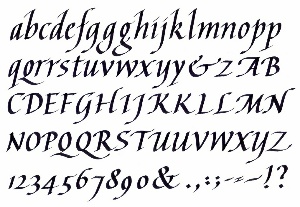 abcdefggghijklmnopp
qqrrstuvwxyy&zAB
CDEFGHIJKKLLMN
NOPQQRSTUUVWXYZ
1234567890& .,:;-~–!?